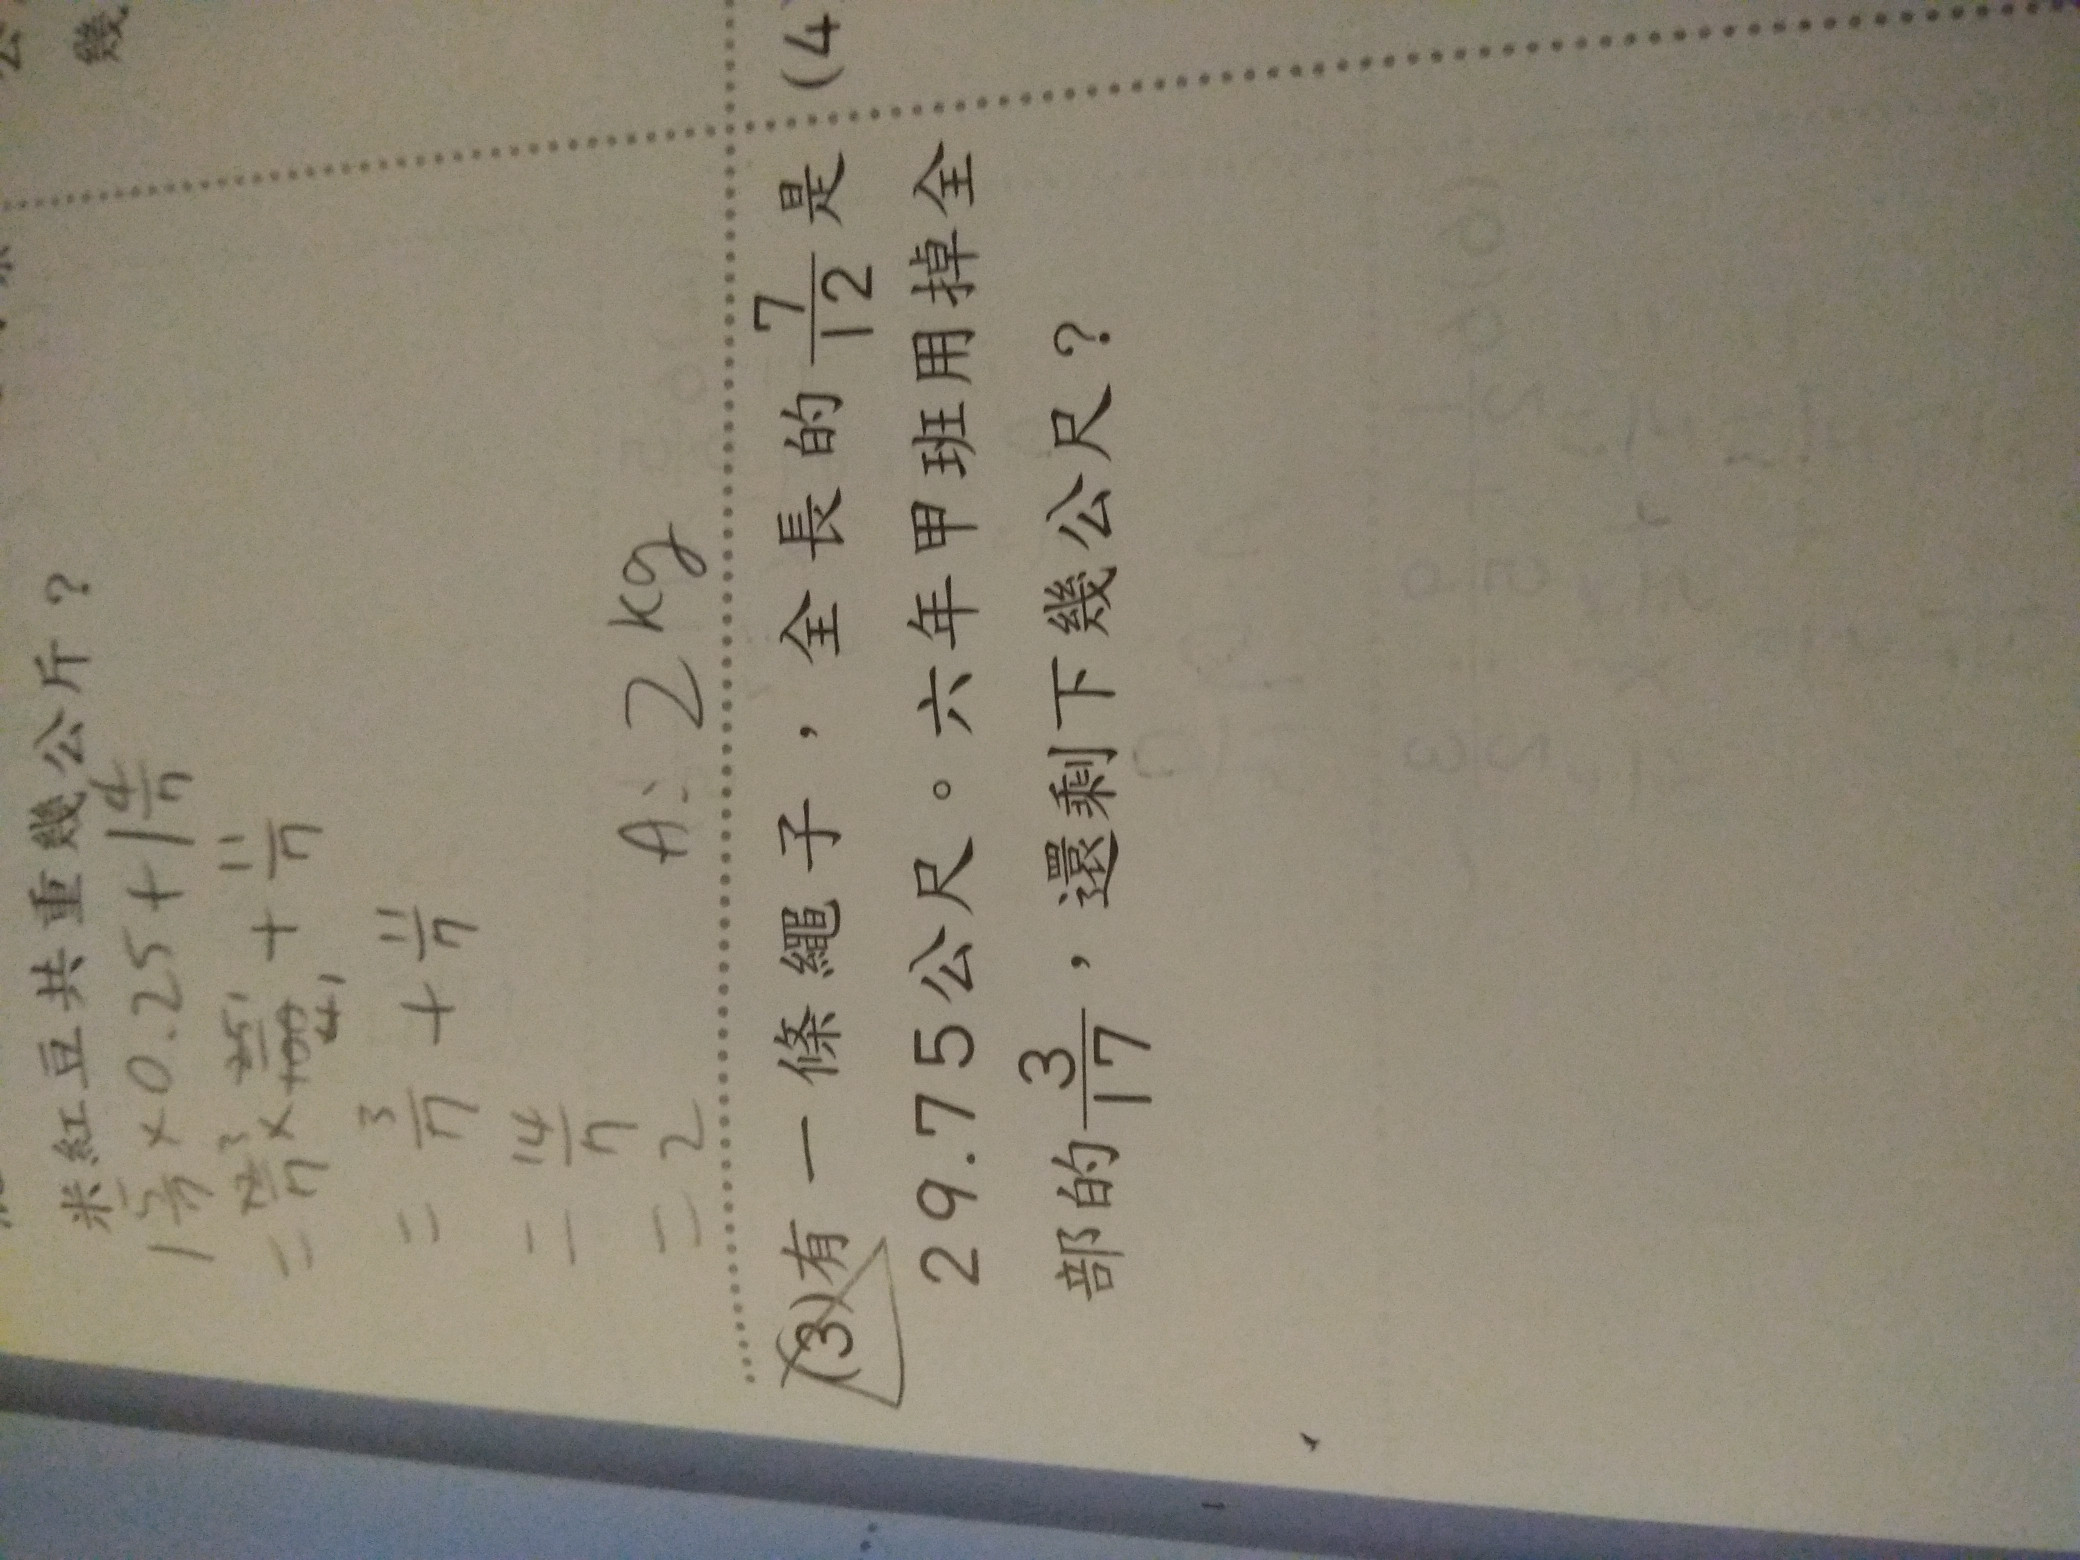 幾
米紅豆共重幾公斤？
1 5/7 × 0.25 + 1 4/7
= 12/7 × 25/100 + 11/7
= 3/7 + 11/7
= 14/7
= 2
A: 2 kg
(3)有一條繩子，全長的 7/12 是
29.75公尺。六年甲班用掉全
部的 3/17，還剩下幾公尺？
(4